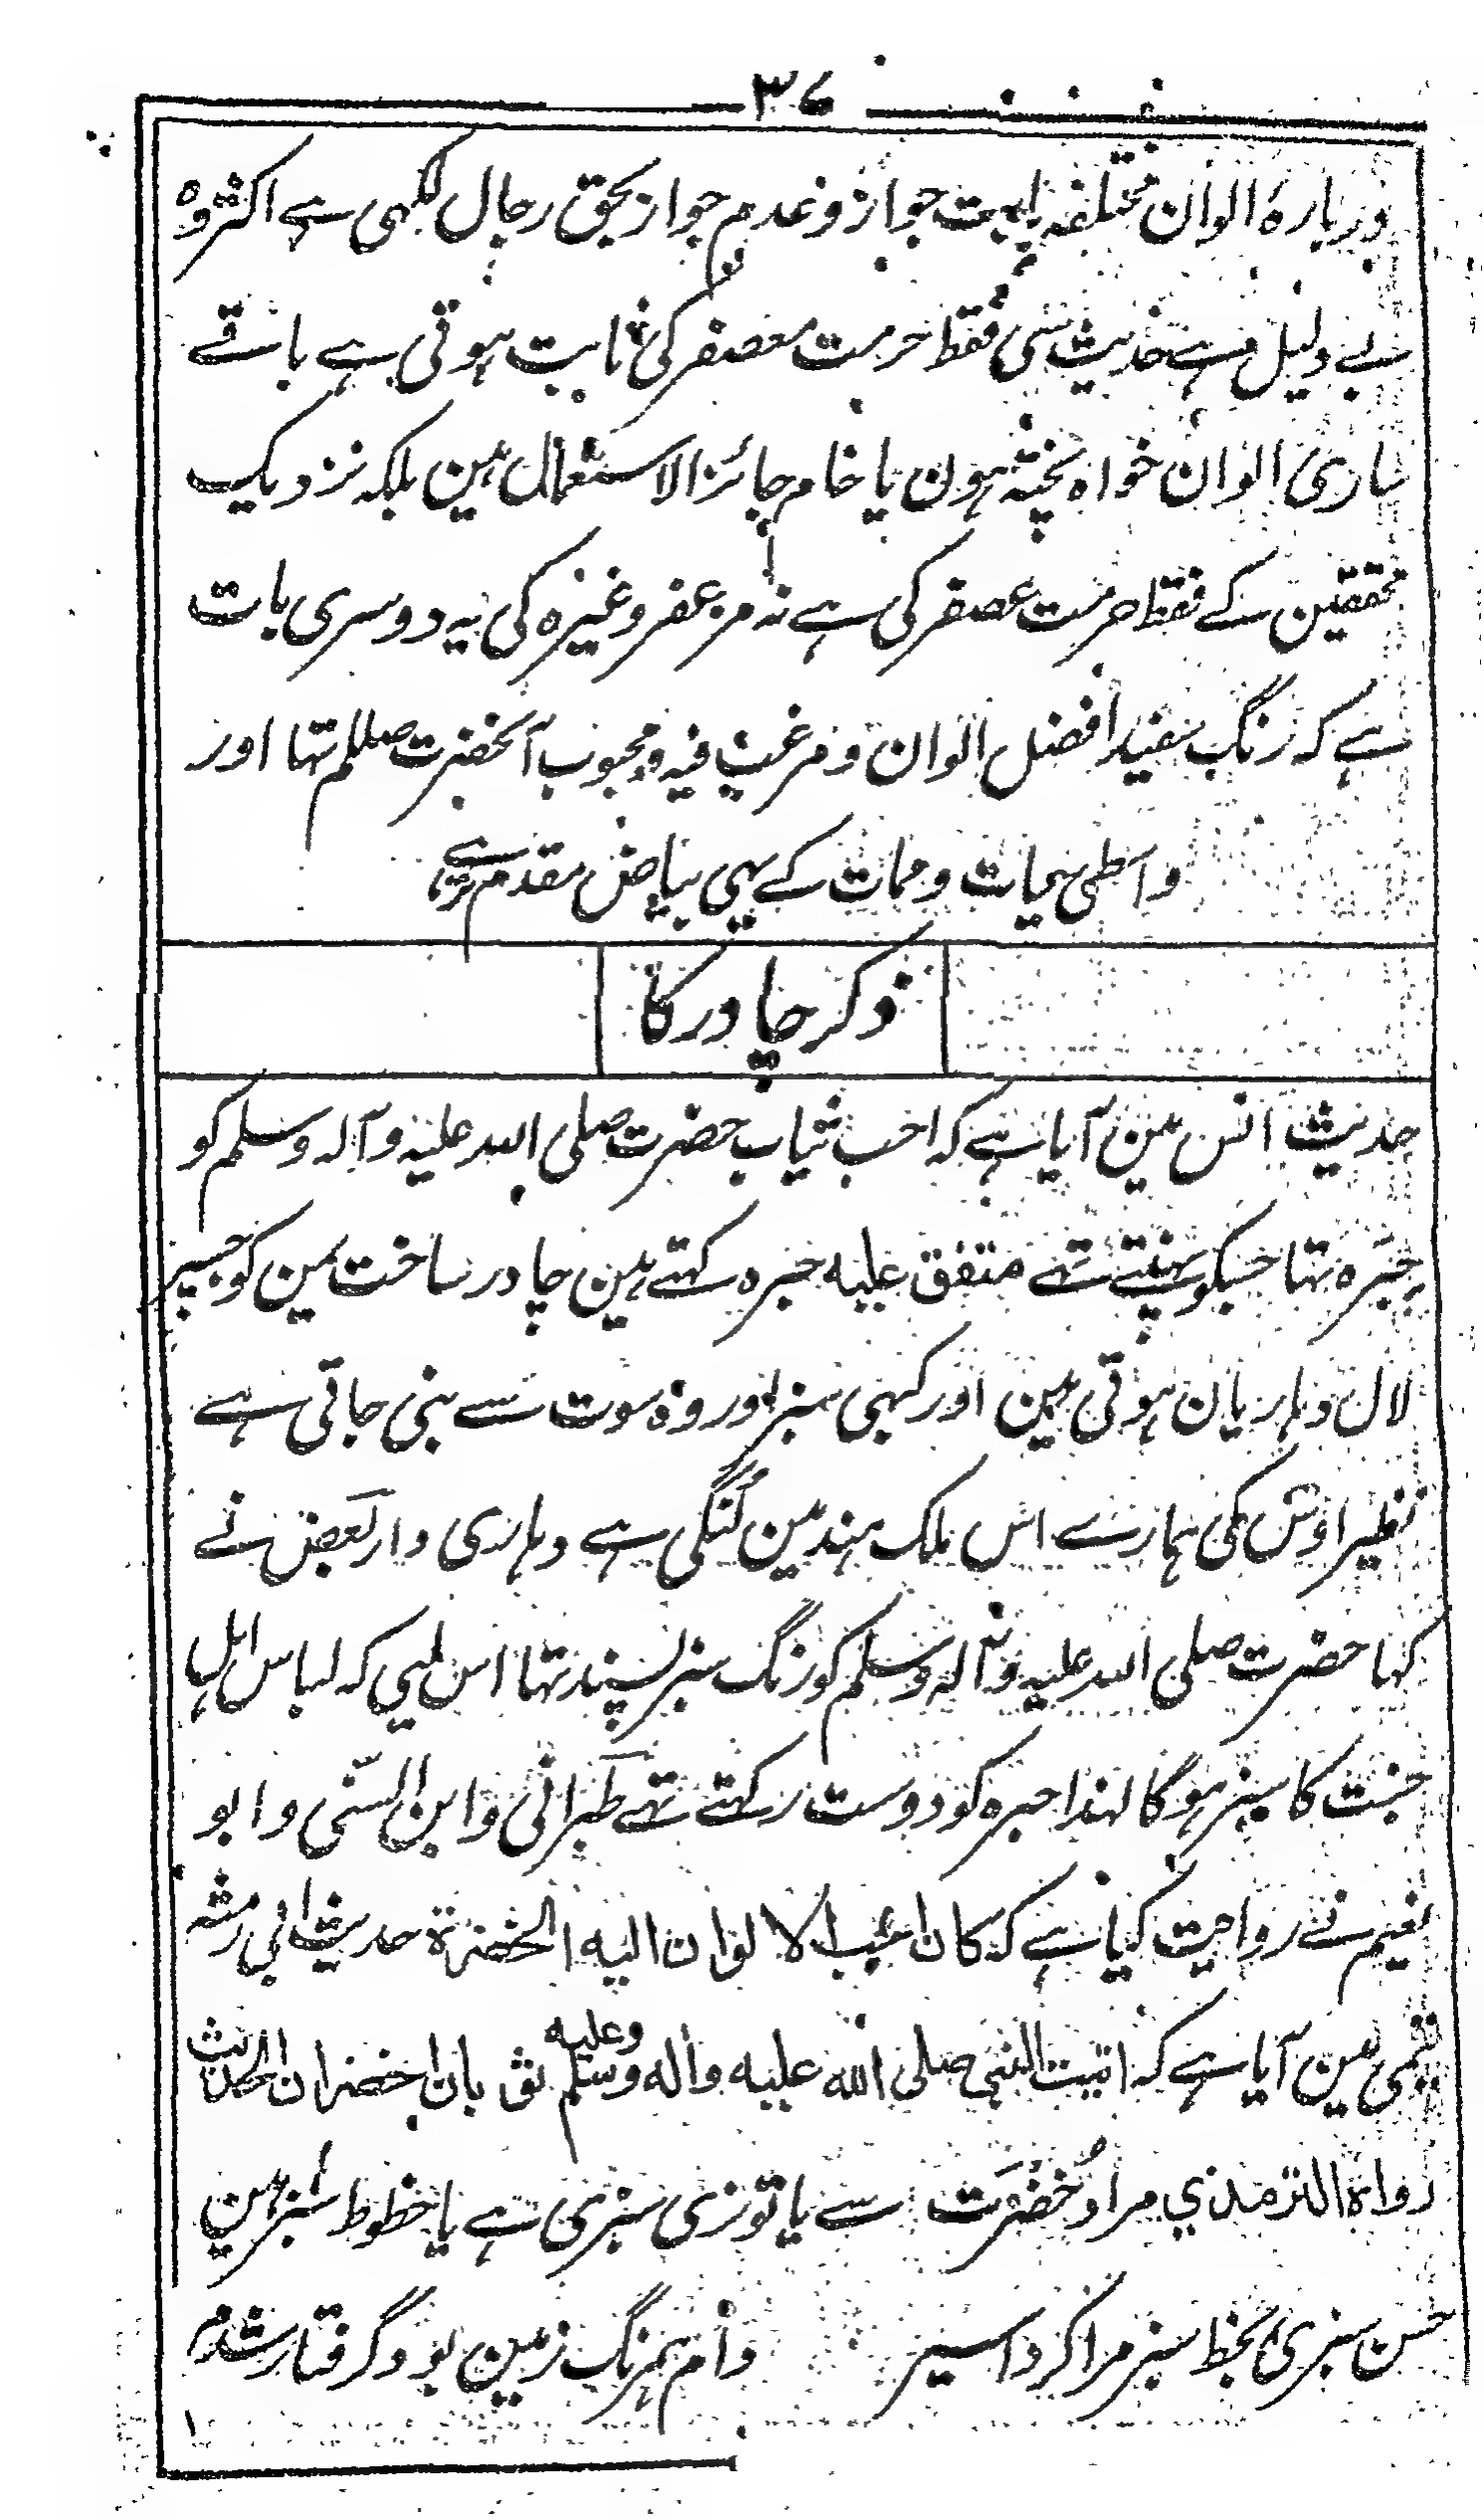 ۳۷
دربارهٔ الوان مختلفہ بابت جواز و عدم جواز بحق رجال لکہی ہے اکثر وہ
بے دلیل ہے حدیث سی فقط حرمت معصفر کی ثابت ہوتی ہے باقے
ساری الوان خواہ پختہ ہون یا خام جائز الاستعمال ہین بلکہ نزدیک
محققین کے فقط حرمت عصفر کی ہے نہ مزعفر وغیرہ کی یہ دوسری بات
ہے کہ رنگ سفید افضل الوان و مرغب فیہ و محبوب آنحضرت صللم تہا اور
واسطی حیات و ممات کے یہی بیاض مقدم ہے
ذکر چادر کا
حدیث انس مین آیا ہے کہ احب ثیاب حضرت صلی اللہ علیہ وآلہ وسلم کو
حِبَرہ تہا جسکو پہنتے تہے متفق علیہ حبرہ کہتے ہین چادر ساخت یمن کو جسپر
لال دہاریان ہوتی ہین اور کبہی سبز اور وہ سوت سے بنی جاتی ہے
نظیر اوس کی ہمارے اس ملک ہند مین لُنگی ہے دہاری دار بعض نے
کہا حضرت صلی اللہ علیہ وآلہ وسلم کو رنگ سبز پسند تہا اس لیی کہ لباس اہل
جنت کا سبز ہوگا لہذا حبرہ کو دوست رکہتے تہے طبرانی و ابن السنی و ابو
نعیم نے روایت کیا ہے کہ کان احب الالوان الیہ الخضرة حدیث ابی رمثہ
تیمی مین آیا ہے کہ اتیت النبی صلی اللہ علیہ وآلہ وسلم وعلیہ ثوبان اخضران الحدیث
رواہ الترمذي مراد خُضْرَت سے یا تو نری سبزی ہے یا خطوط سبز ہین
حسن سبزی بخط سبز مرا کرد اسیر دام ہمرنگ زمین بود گرفتار شدم